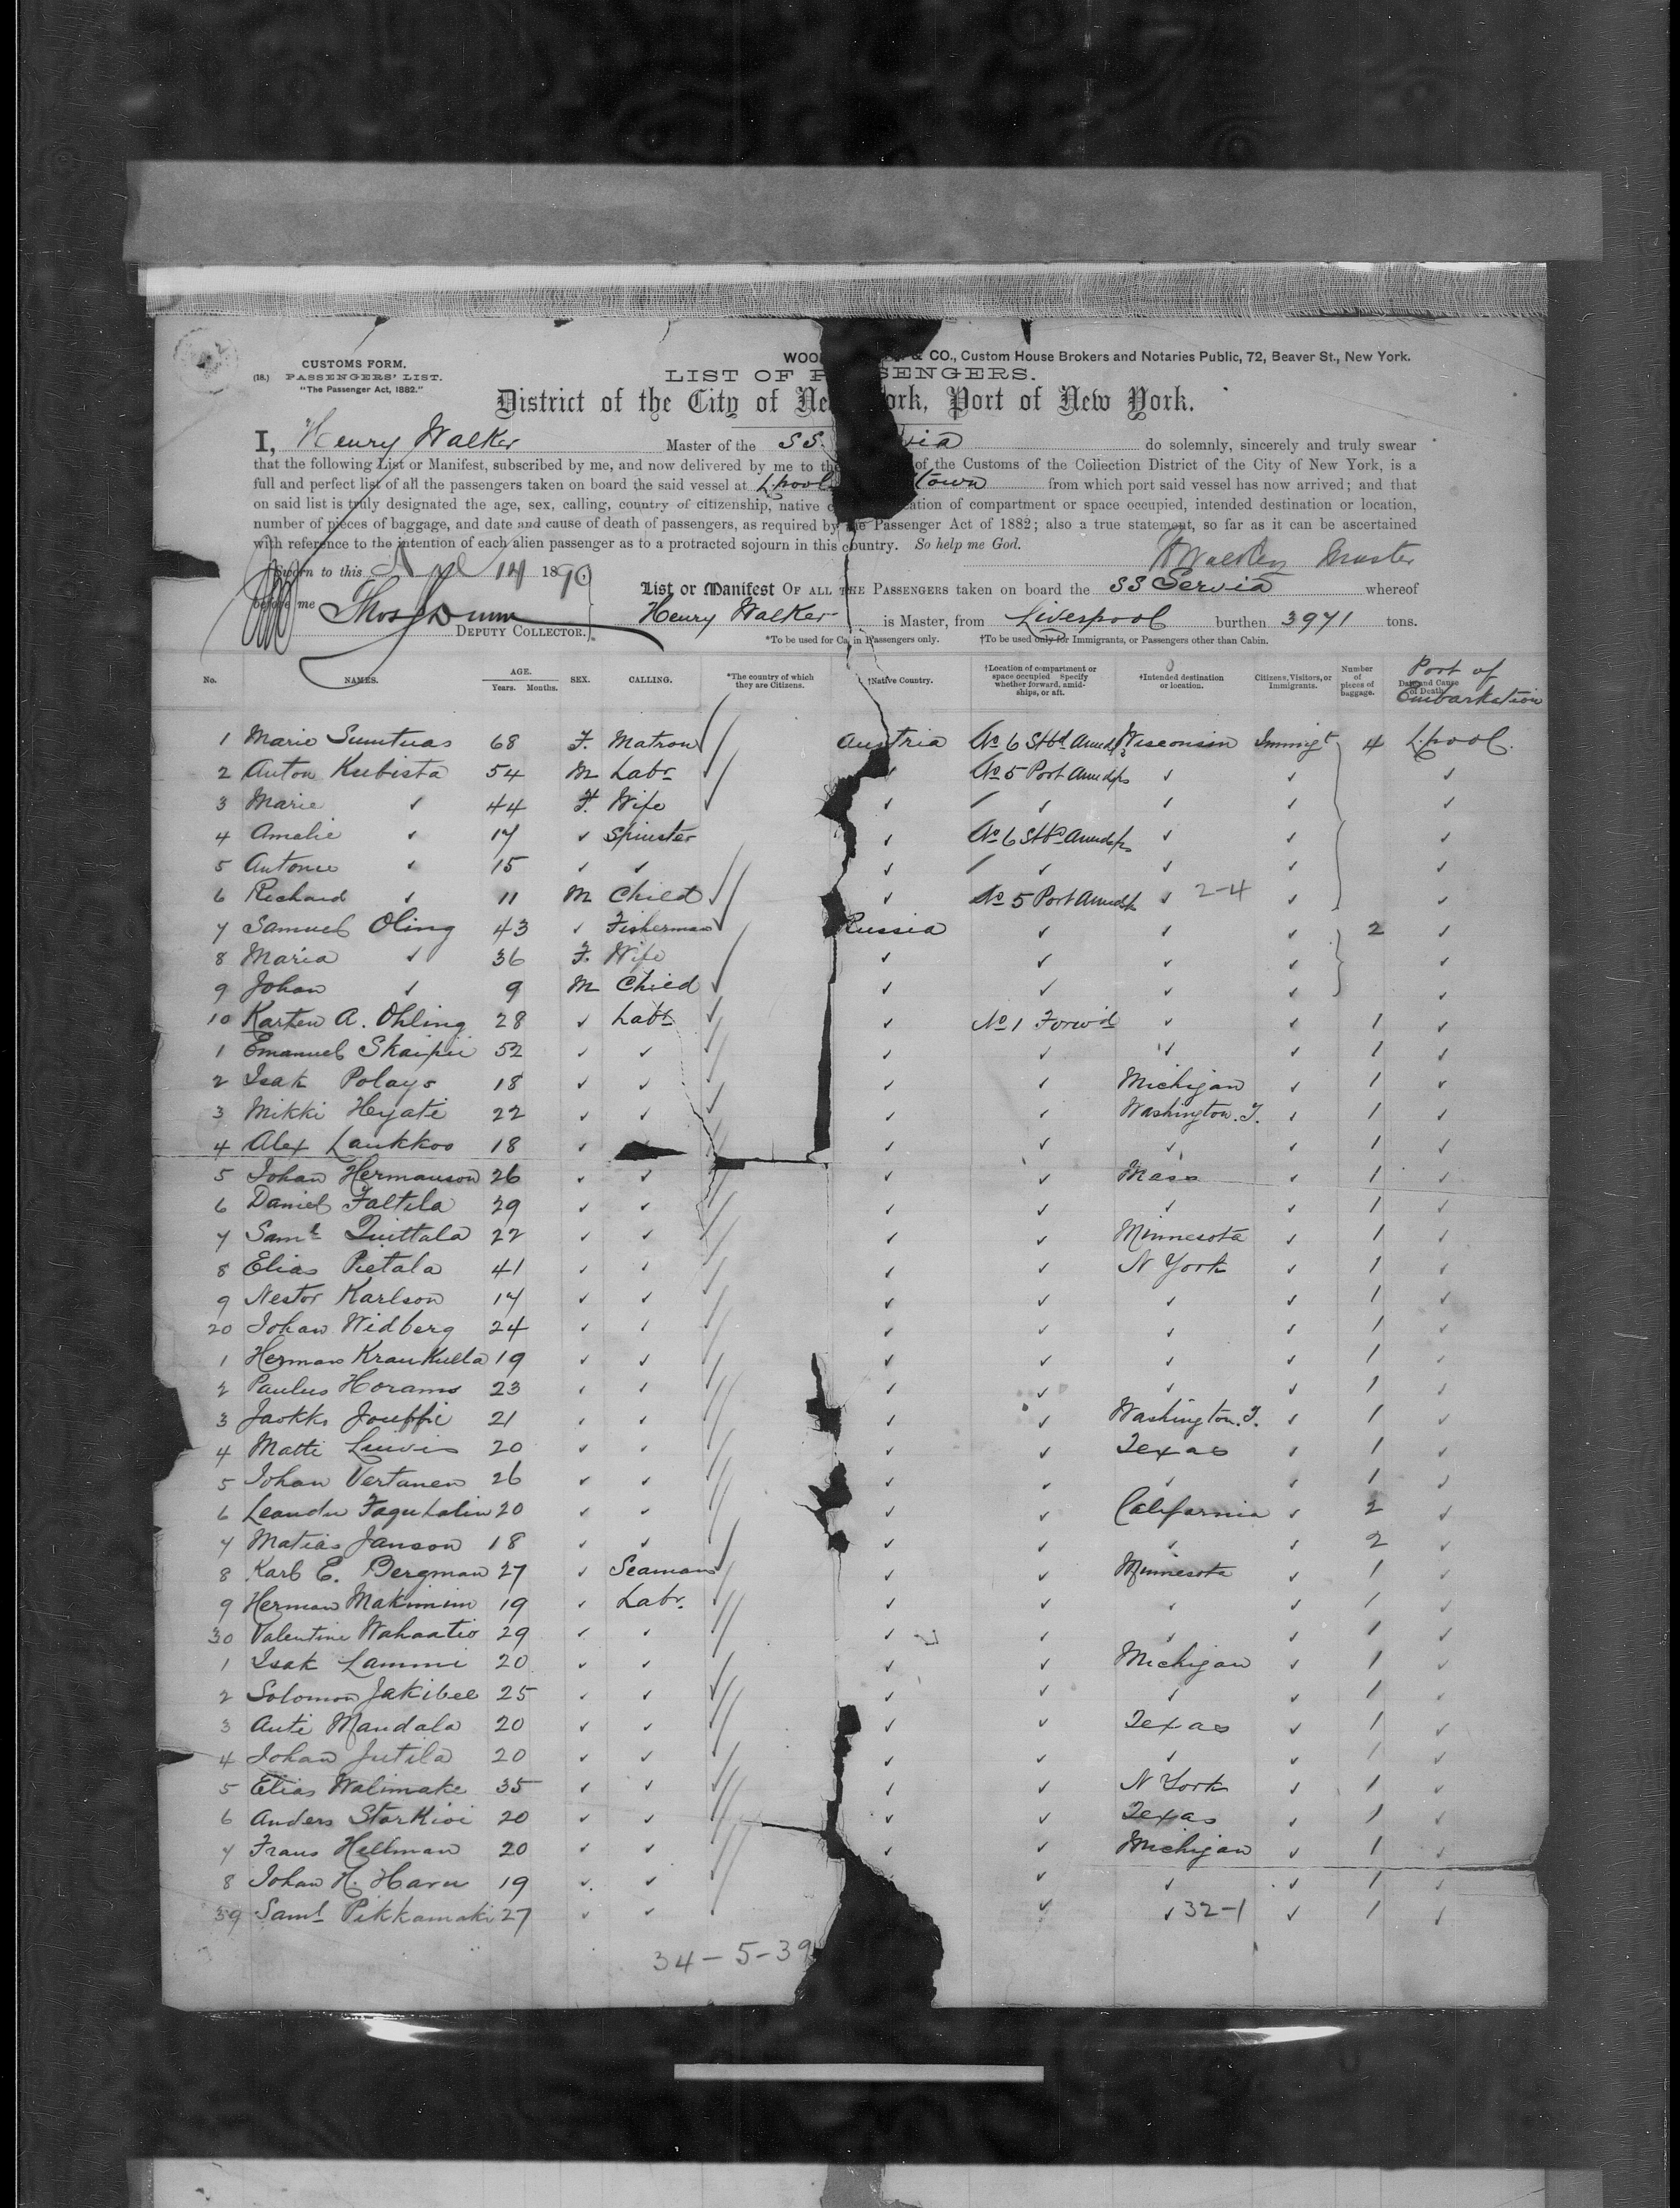 CUSTOMS FORM.
(18.) PASSENGERS' LIST.
"The Passenger Act, 1882."
WOO & CO., Custom House Brokers and Notaries Public, 72, Beaver St., New York.
LIST OF P SENGERS.
District of the City of Ne ork, Port of New York.
I, Henry Walker Master of the SS. via do solemnly, sincerely and truly swear
that the following List or Manifest, subscribed by me, and now delivered by me to the of the Customs of the Collection District of the City of New York, is a
full and perfect list of all the passengers taken on board the said vessel at L.pool town from which port said vessel has now arrived; and that
on said list is truly designated the age, sex, calling, country of citizenship, native c ation of compartment or space occupied, intended destination or location,
number of pieces of baggage, and date and cause of death of passengers, as required by the Passenger Act of 1882; also a true statement, so far as it can be ascertained
with reference to the intention of each alien passenger as to a protracted sojourn in this country. So help me God.
HWalker Master
Sworn to this 14 1890
List or Manifest OF ALL THE PASSENGERS taken on board the SS Servia whereof
before me Thos Dunn
DEPUTY COLLECTOR.
Henry Walker is Master, from Liverpool burthen 3971 tons.
*To be used for Cabin Passengers only. †To be used only for Immigrants, or Passengers other than Cabin.
No. NAMES. AGE. Years. Months. SEX. CALLING. *The country of which they are Citizens. †Native Country. †Location of compartment or space occupied Specify whether forward, amidships, or aft. †Intended destination or location. Citizens, Visitors, or Immigrants. Number of pieces of baggage. Date and Cause of Death. Port of Embarkation
1 Marie 68 F. Matron Austria No 6 Stbd Amdps Wisconsin Immigt 4 L.pool.
2 Anton Kubista 54 M Labr ✓ No 5 Port Amdps ✓ ✓ ✓
3 Marie ✓ 44 F. Wife ✓ ✓ ✓ ✓ ✓
4 Amalie ✓ 17 ✓ Spinster ✓ No 6 Stbd Amdps ✓ ✓ ✓
5 Antonie ✓ 15 ✓ ✓ ✓ ✓ ✓ ✓ ✓
6 Richard ✓ 11 M Child ✓ No 5 Port Amdps ✓ 2-4 ✓ ✓
7 Samuel Oling 43 ✓ Fisherman Russia ✓ ✓ ✓ 2 ✓
8 Maria ✓ 36 F. Wife ✓ ✓ ✓ ✓ ✓
9 Johan ✓ 9 M Child ✓ ✓ ✓ ✓ ✓
10 Karten A. Ohling 28 ✓ Labr ✓ No 1 Forwd ✓ ✓ 1 ✓
1 Emanuel 52 ✓ ✓ ✓ ✓ ✓ ✓ 1 ✓
2 Isak Polays 18 ✓ ✓ ✓ ✓ Michigan ✓ 1 ✓
3 Mikki Heyati 22 ✓ ✓ ✓ ✓ Washington. T. ✓ 1 ✓
4 Alex Laukkoo 18 ✓ ✓ ✓ ✓ ✓ 1 ✓
5 Johan Hermanson 26 ✓ ✓ ✓ ✓ Mass ✓ 1 ✓
6 Daniel Faltila 29 ✓ ✓ ✓ ✓ ✓ ✓ 1 ✓
7 Saml 22 ✓ ✓ ✓ ✓ Minnesota ✓ 1 ✓
8 Elias Pietala 41 ✓ ✓ ✓ ✓ N York ✓ 1 ✓
9 Nestor Karlson 17 ✓ ✓ ✓ ✓ ✓ ✓ 1 ✓
20 Johan Widberg 24 ✓ ✓ ✓ ✓ ✓ ✓ 1 ✓
1 Herman Kraukulla 19 ✓ ✓ ✓ ✓ ✓ ✓ 1 ✓
2 Paulus 23 ✓ ✓ ✓ ✓ ✓ ✓ 1 ✓
3 Jaokko 21 ✓ ✓ ✓ ✓ Washington. T. ✓ 1 ✓
4 Matti 20 ✓ ✓ ✓ ✓ Texas ✓ 1 ✓
5 Johan Vertanen 26 ✓ ✓ ✓ ✓ ✓ ✓ 1 ✓
6 20 ✓ ✓ ✓ California ✓ 2 ✓
7 Matias Janson 18 ✓ ✓ ✓ ✓ ✓ ✓ 2 ✓
8 Karl E. Bergman 27 ✓ Seaman ✓ ✓ Minnesota ✓ 1 ✓
9 Herman Makinimi 19 ✓ Labr. ✓ ✓ ✓ ✓ 1 ✓
30 Valentine Wahaatio 29 ✓ ✓ ✓ ✓ ✓ ✓ 1 ✓
1 Isak Lammi 20 ✓ ✓ ✓ ✓ Michigan ✓ 1 ✓
2 Solomon Jakibee 25 ✓ ✓ ✓ ✓ ✓ ✓ 1 ✓
3 Anti Mandala 20 ✓ ✓ ✓ ✓ Texas ✓ 1 ✓
4 Johan Jutila 20 ✓ ✓ ✓ ✓ ✓ ✓ 1 ✓
5 Elias Walimake 35 ✓ ✓ ✓ ✓ N York ✓ 1 ✓
6 Anders Storkivi 20 ✓ ✓ ✓ ✓ Texas ✓ 1 ✓
7 Frans Hellman 20 ✓ ✓ ✓ ✓ Michigan ✓ 1 ✓
8 Johan H. Haru 19 ✓ ✓ ✓ ✓ ✓ 1 ✓
39 Saml Pikkamaki 27 ✓ ✓ ✓ ✓ 32-1 ✓ 1 ✓
34-5-39